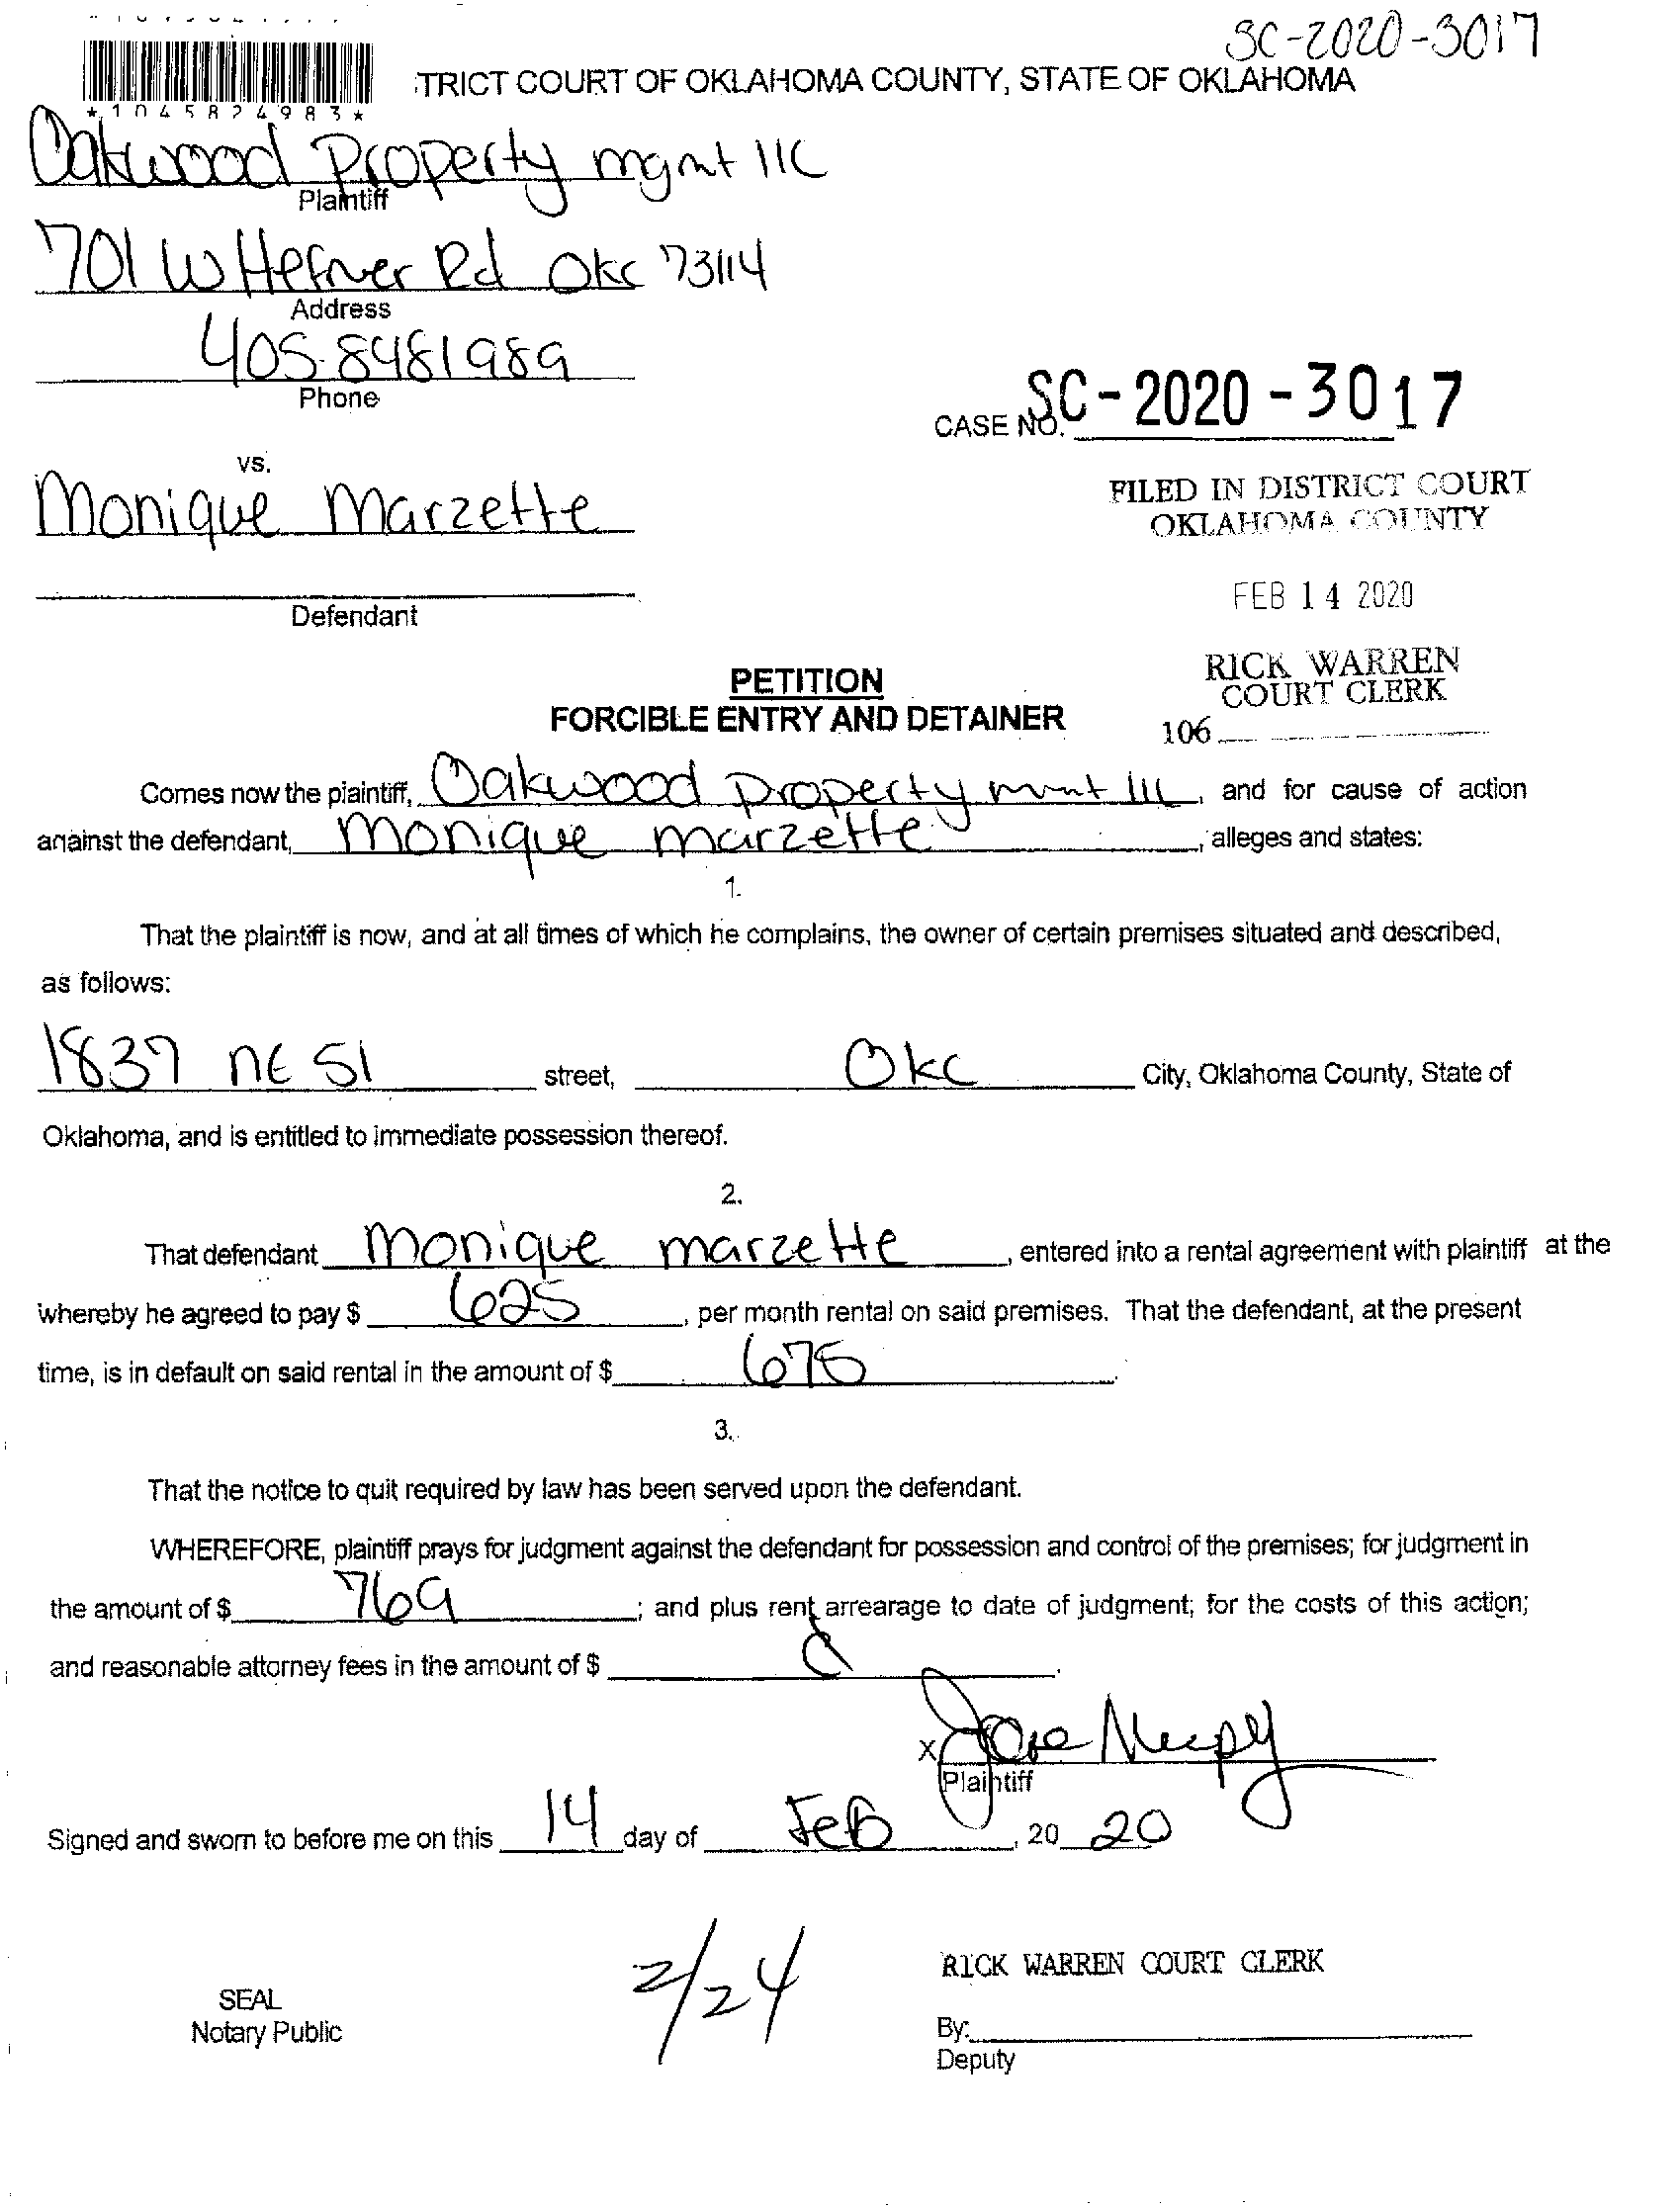 SC-2020-3017
TRICT COURT OF OKLAHOMA COUNTY, STATE OF OKLAHOMA
*1045824983*
Oakwood Property mgmt llc
Plaintiff
701 W Hefner Rd Okc 73114
Address
405-8481989
Phone
CASE NO. SC-2020-3017
vs.
Monique Marzette
FILED IN DISTRICT COURT
OKLAHOMA COUNTY
FEB 14 2020
Defendant
RICK WARREN
COURT CLERK
106
PETITION
FORCIBLE ENTRY AND DETAINER
Comes now the plaintiff, Oakwood property mmt llc, and for cause of action
against the defendant, monique marzette, alleges and states:
1.
That the plaintiff is now, and at all times of which he complains, the owner of certain premises situated and described,
as follows:
1837 NE 51 street, Okc City, Oklahoma County, State of
Oklahoma, and is entitled to immediate possession thereof.
2.
That defendant monique marzette, entered into a rental agreement with plaintiff at the
whereby he agreed to pay $ 625, per month rental on said premises. That the defendant, at the present
time, is in default on said rental in the amount of $ 675.
3.
That the notice to quit required by law has been served upon the defendant.
WHEREFORE, plaintiff prays for judgment against the defendant for possession and control of the premises; for judgment in
the amount of $ 769; and plus rent arrearage to date of judgment; for the costs of this action;
and reasonable attorney fees in the amount of $
X
Plaintiff
Signed and sworn to before me on this 14 day of Feb, 20 20
2/24
RICK WARREN COURT CLERK
SEAL
Notary Public
By:
Deputy